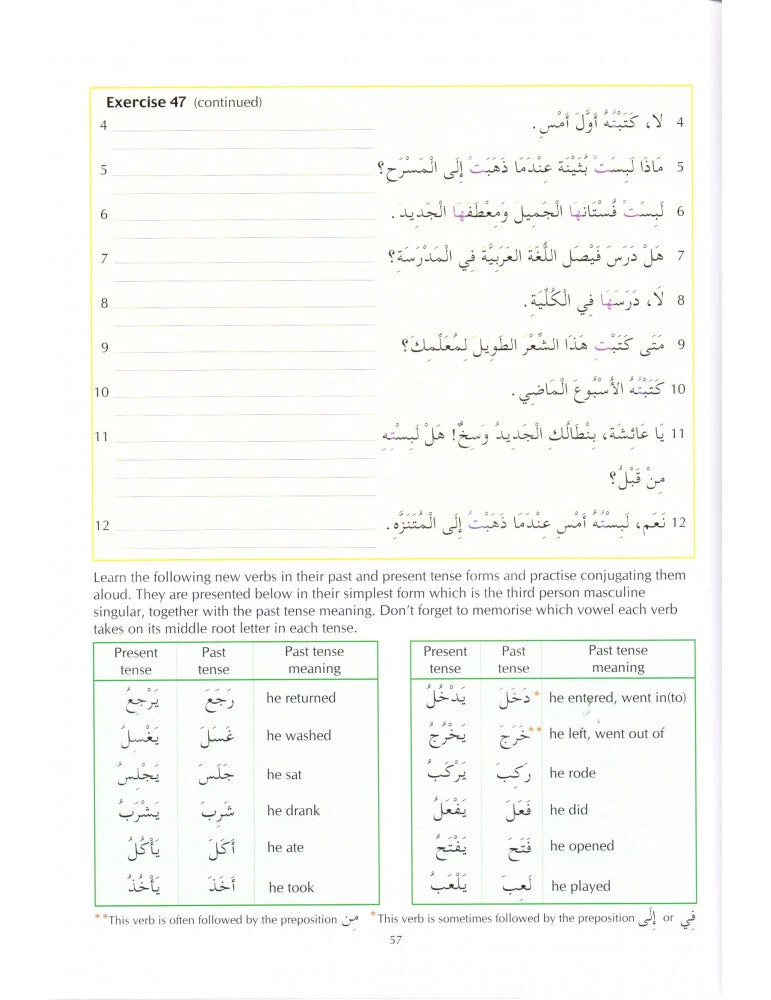 Exercise 47 (continued)
4 لا، كَتَبْتُهُ أَوَّلَ أَمْسِ. 4
5 مَاذَا لَبِسَتْ بُثَيْنَة عِنْدَمَا ذَهَبَتْ إِلَى الْمَسْرَحِ؟ 5
6 لَبِسَتْ فُسْتَانَهَا الْجَمِيلَ وَمِعْطَفَهَا الْجَدِيدَ. 6
7 هَلْ دَرَسَ فَيْصَل اللُّغَةَ العَرَبِيَّةَ فِي الْمَدْرَسَةِ؟ 7
8 لَا، دَرَسَهَا فِي الْكُلِّيَةِ. 8
9 مَتَى كَتَبْتِ هَذَا الشِّعْرَ الطَوِيلَ لِمُعَلِّمِكِ؟ 9
10 كَتَبْتُهُ الأُسْبُوعَ الْمَاضِي. 10
11 يَا عَائِشَة، بِنْطَالُكِ الْجَدِيدُ وَسِخٌ! هَلْ لَبِسْتِهِ 11
مِنْ قَبْلُ؟
12 نَعَم، لَبِسْتُهُ أَمْسِ عِنْدَمَا ذَهَبْتُ إِلَى الْمُتَنَزَّهِ. 12
Learn the following new verbs in their past and present tense forms and practise conjugating them
aloud. They are presented below in their simplest form which is the third person masculine
singular, together with the past tense meaning. Don't forget to memorise which vowel each verb
takes on its middle root letter in each tense.
Present Past Past tense
tense tense meaning
يَرْجِعُ رَجَعَ he returned
يَغْسِلُ غَسَلَ he washed
يَجْلِسُ جَلَسَ he sat
يَشْرَبُ شَرِبَ he drank
يَأْكُلُ أَكَلَ he ate
يَأْخُذُ أَخَذَ he took
Present Past Past tense
tense tense meaning
يَدْخُلُ دَخَلَ* he entered, went in(to)
يَخْرُجُ خَرَجَ** he left, went out of
يَرْكَبُ رَكِبَ he rode
يَفْعَلُ فَعَلَ he did
يَفْتَحُ فَتَحَ he opened
يَلْعَبُ لَعِبَ he played
**This verb is often followed by the preposition مِن *This verb is sometimes followed by the preposition إِلَى or فِي
57